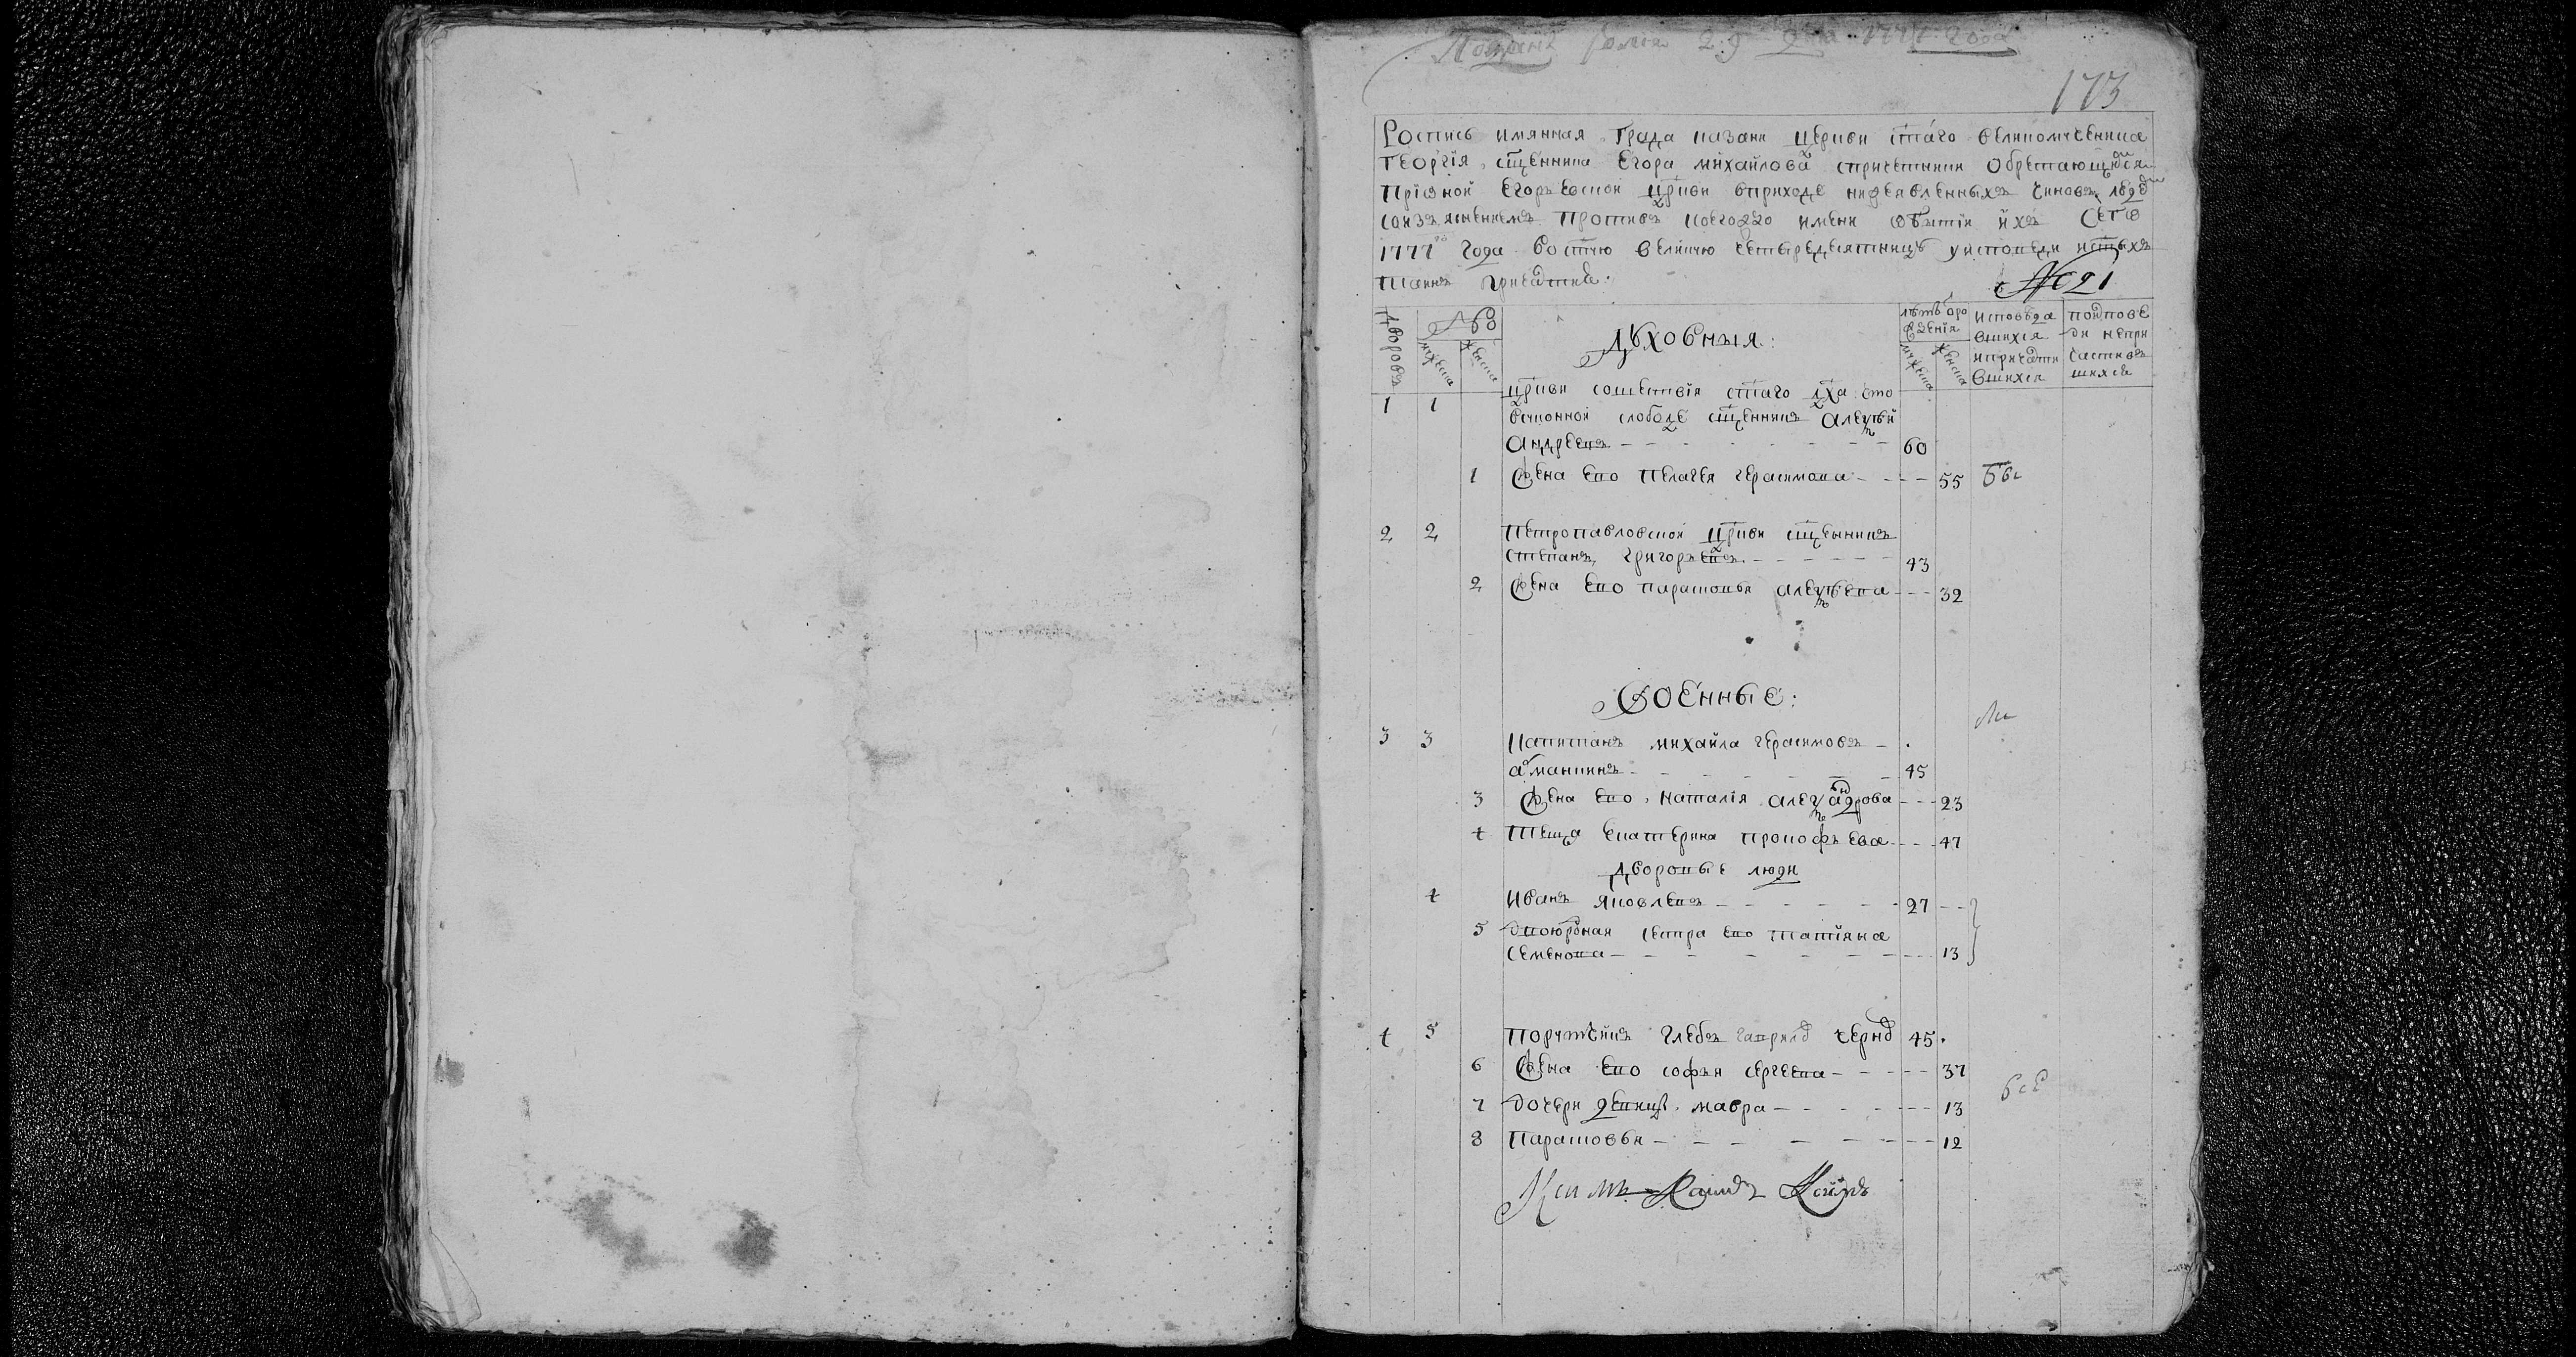 173
Роспись имянная града казани церкви стаго великомученика
георгія сщенника Егора михайлова спричетники обретающихся
пріоной Егорьевской цркви вприходе нижеявленныхъ чиновъ людѣ
соизъявлениемъ противъ коегождо имени о бытіи ихъ сего
1777 года востую великую четыредесятницу уисповеди истыхъ
таинъ причастия
№ 21
Дворовъ
мужеска
женска
Духовныя:
лѣтъ о рождения
мужеска
женска
исповѣдавшихся и причастившихся
поисповеди непричастившихся
1 1 цркви сошествія стаго дха что
всуконной слободе сщенникъ алеѯѣй
андреевъ 60
1 Жена ево пелагея герасимова 55
2 2 Петропавловской цркви сщенникъ
степанъ григорьевъ 43
2 Жена ево парасковья алеѯѣева 32
Военные:
3 3 Капитанъ михайла герасимовъ
45
3 Жена ево наталія алеѯандрова 23
4 Теща екатерина прокофьева 47
Дворовые люди
4 Иванъ яковлевъ 27
5 двоюродная сестра ево татіяна
семенова 13
4 5 Порутчикъ глебъ гаврилъ 45
6 Жена ево софья сергеева 37
7 дочери девицы мавра 13
8 Парасковья 12
все